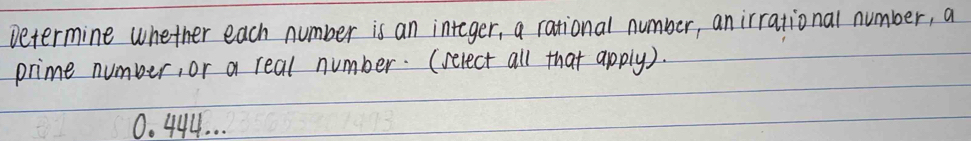 Determine whether each number is an integer, a rational number, an irrational number, a
prime number, or a real number. (select all that apply).
0.444...